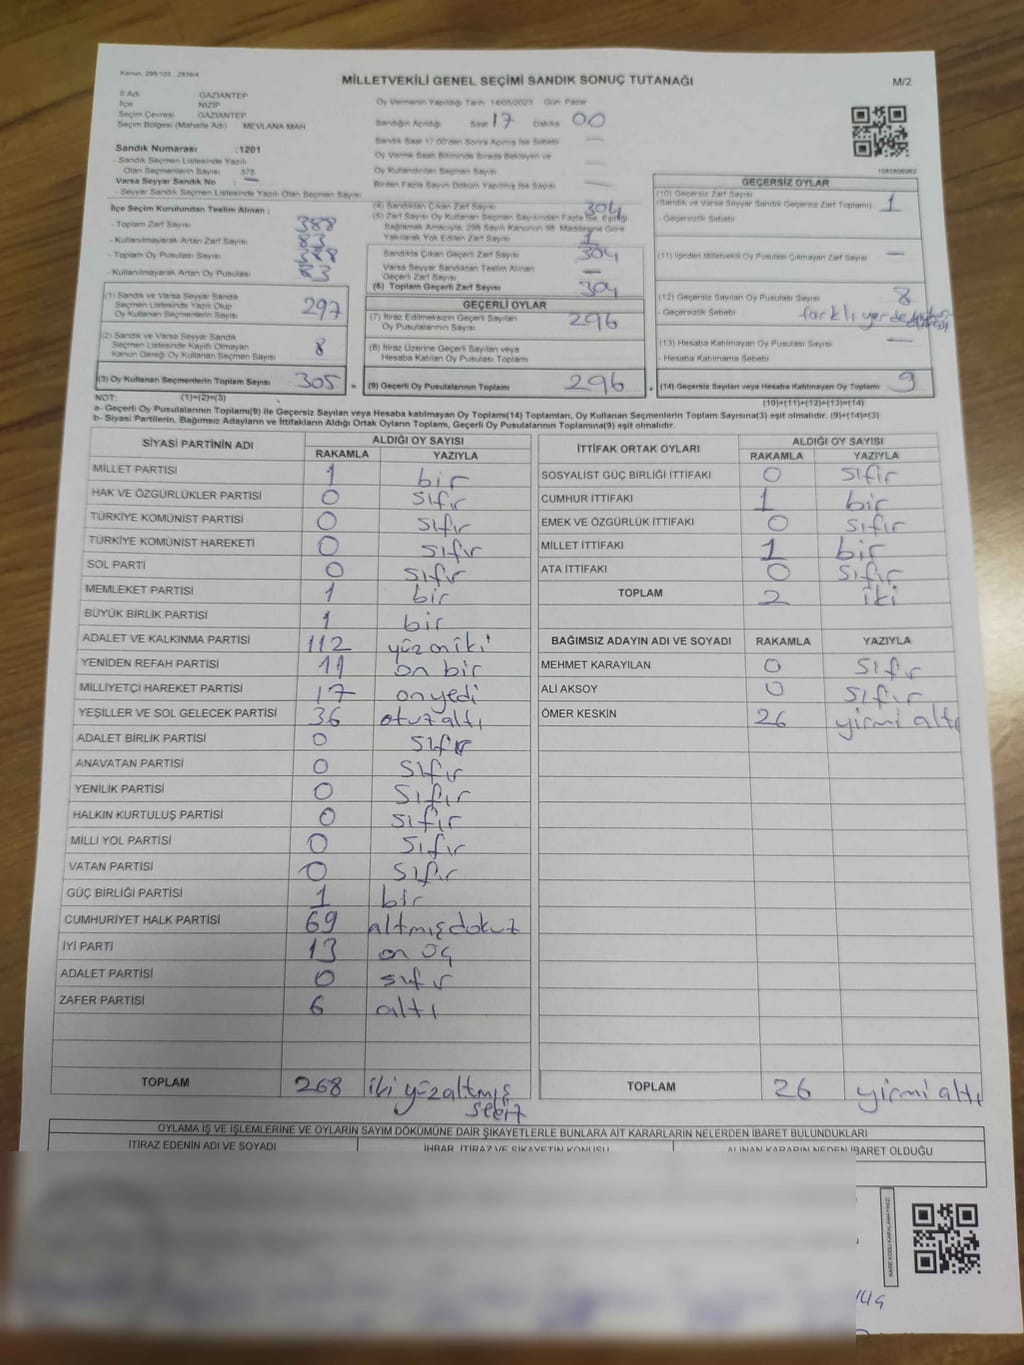 Kanun. 298/105 . 2839/4
MİLLETVEKİLİ GENEL SEÇİMİ SANDIK SONUÇ TUTANAĞI
M/2
İl Adı GAZİANTEP
İlçe NİZİP
Seçim Çevresi GAZİANTEP
Seçim Bölgesi (Mahalle Adı) MEVLANA MAH
Sandık Numarası :1201
- Sandık Seçmen Listesinde Yazılı
Olan Seçmenlerin Sayısı 375
Varsa Seyyar Sandık No —
- Seyyar Sandık Seçmen Listesinde Yazılı Olan Seçmen Sayısı
Oy Vermenin Yapıldığı Tarih 14/05/2023 Gün Pazar
Sandığın Açıldığı Saat 17 Dakika 00
Sandık Saat 17.00'den Sonra Açılmış İse Sebebi —
Oy Verme Saati Bitiminde Sırada Bekleyen ve
Oy Kullandırılan Seçmen Sayısı —
Birden Fazla Sayım Döküm Yapılmış İse Sayısı —
İlçe Seçim Kurulundan Teslim Alınan :
- Toplam Zarf Sayısı 388
- Kullanılmayarak Artan Zarf Sayısı 83
- Toplam Oy Pusulası Sayısı 388
- Kullanılmayarak Artan Oy Pusulası 83
(1) Sandık ve Varsa Seyyar Sandık
Seçmen Listesinde Yazılı Olup
Oy Kullanan Seçmenlerin Sayısı 297
(2) Sandık ve Varsa Seyyar Sandık
Seçmen Listesinde Kayıtlı Olmayan
Kanun Gereği Oy Kullanan Seçmen Sayısı 8
(3) Oy Kullanan Seçmenlerin Toplam Sayısı 305 =
(4) Sandıktan Çıkan Zarf Sayısı 304
(5) Zarf Sayısı Oy Kullanan Seçmen Sayısından Fazla İse, Eşitliği
Sağlamak Amacıyla, 298 Sayılı Kanunun 98. Maddesine Göre
Yakılarak Yok Edilen Zarf Sayısı 1
Sandıkta Çıkan Geçerli Zarf Sayısı 304
Varsa Seyyar Sandıktan Teslim Alınan
Geçerli Zarf Sayısı —
(6) Toplam Geçerli Zarf Sayısı 304
GEÇERLİ OYLAR
(7) İtiraz Edilmeksizin Geçerli Sayılan
Oy Pusulalarının Sayısı 296
(8) İtiraz Üzerine Geçerli Sayılan veya
Hesaba Katılan Oy Pusulası Toplamı
(9) Geçerli Oy Pusulalarının Toplamı 296 +
GEÇERSİZ OYLAR
(10) Geçersiz Zarf Sayısı
(Sandık ve Varsa Seyyar Sandık Geçersiz Zarf Toplamı) 1
- Geçersizlik Sebebi
(11) İçinden Milletvekili Oy Pusulası Çıkmayan Zarf Sayısı —
(12) Geçersiz Sayılan Oy Pusulası Sayısı 8
- Geçersizlik Sebebi farklı yerde
(13) Hesaba Katılmayan Oy Pusulası Sayısı —
- Hesaba Katılmama Sebebi
(14) Geçersiz Sayılan veya Hesaba Katılmayan Oy Toplamı 9
NOT: (1)+(2)=(3)
(10)+(11)+(12)+(13)=(14)
a- Geçerli Oy Pusulalarının Toplamı(9) ile Geçersiz Sayılan veya Hesaba katılmayan Oy Toplamı(14) Toplamları, Oy Kullanan Seçmenlerin Toplam Sayısına(3) eşit olmalıdır. (9)+(14)=(3)
b- Siyasi Partilerin, Bağımsız Adayların ve İttifakların Aldığı Ortak Oyların Toplamı, Geçerli Oy Pusulalarının Toplamına(9) eşit olmalıdır.
SİYASİ PARTİNİN ADI ALDIĞI OY SAYISI
RAKAMLA YAZIYLA
MİLLET PARTİSİ 1 bir
HAK VE ÖZGÜRLÜKLER PARTİSİ 0 sıfır
TÜRKİYE KOMÜNİST PARTİSİ 0 sıfır
TÜRKİYE KOMÜNİST HAREKETİ 0 sıfır
SOL PARTİ 0 sıfır
MEMLEKET PARTİSİ 1 bir
BÜYÜK BİRLİK PARTİSİ 1 bir
ADALET VE KALKINMA PARTİSİ 112 yüz oniki
YENİDEN REFAH PARTİSİ 11 on bir
MİLLİYETÇİ HAREKET PARTİSİ 17 on yedi
YEŞİLLER VE SOL GELECEK PARTİSİ 36 otuz altı
ADALET BİRLİK PARTİSİ 0 sıfır
ANAVATAN PARTİSİ 0 sıfır
YENİLİK PARTİSİ 0 sıfır
HALKIN KURTULUŞ PARTİSİ 0 sıfır
MİLLİ YOL PARTİSİ 0 sıfır
VATAN PARTİSİ 0 sıfır
GÜÇ BİRLİĞİ PARTİSİ 1 bir
CUMHURİYET HALK PARTİSİ 69 altmış dokuz
İYİ PARTİ 13 on üç
ADALET PARTİSİ 0 sıfır
ZAFER PARTİSİ 6 altı
TOPLAM 268 iki yüz altmış
sekiz
İTTİFAK ORTAK OYLARI ALDIĞI OY SAYISI
RAKAMLA YAZIYLA
SOSYALİST GÜÇ BİRLİĞİ İTTİFAKI 0 sıfır
CUMHUR İTTİFAKI 1 bir
EMEK VE ÖZGÜRLÜK İTTİFAKI 0 sıfır
MİLLET İTTİFAKI 1 bir
ATA İTTİFAKI 0 sıfır
TOPLAM 2 iki
BAĞIMSIZ ADAYIN ADI VE SOYADI RAKAMLA YAZIYLA
MEHMET KARAYILAN 0 sıfır
ALİ AKSOY 0 sıfır
ÖMER KESKİN 26 yirmi altı
TOPLAM 26 yirmi altı
OYLAMA İŞ VE İŞLEMLERİNE VE OYLARIN SAYIM DÖKÜMÜNE DAİR ŞİKAYETLERLE BUNLARA AİT KARARLARIN NELERDEN İBARET BULUNDUKLARI
İTİRAZ EDENİN ADI VE SOYADI İHBAR, İTİRAZ VE ŞİKAYETİN KONUSU ALINAN KARARIN NEDEN İBARET OLDUĞU